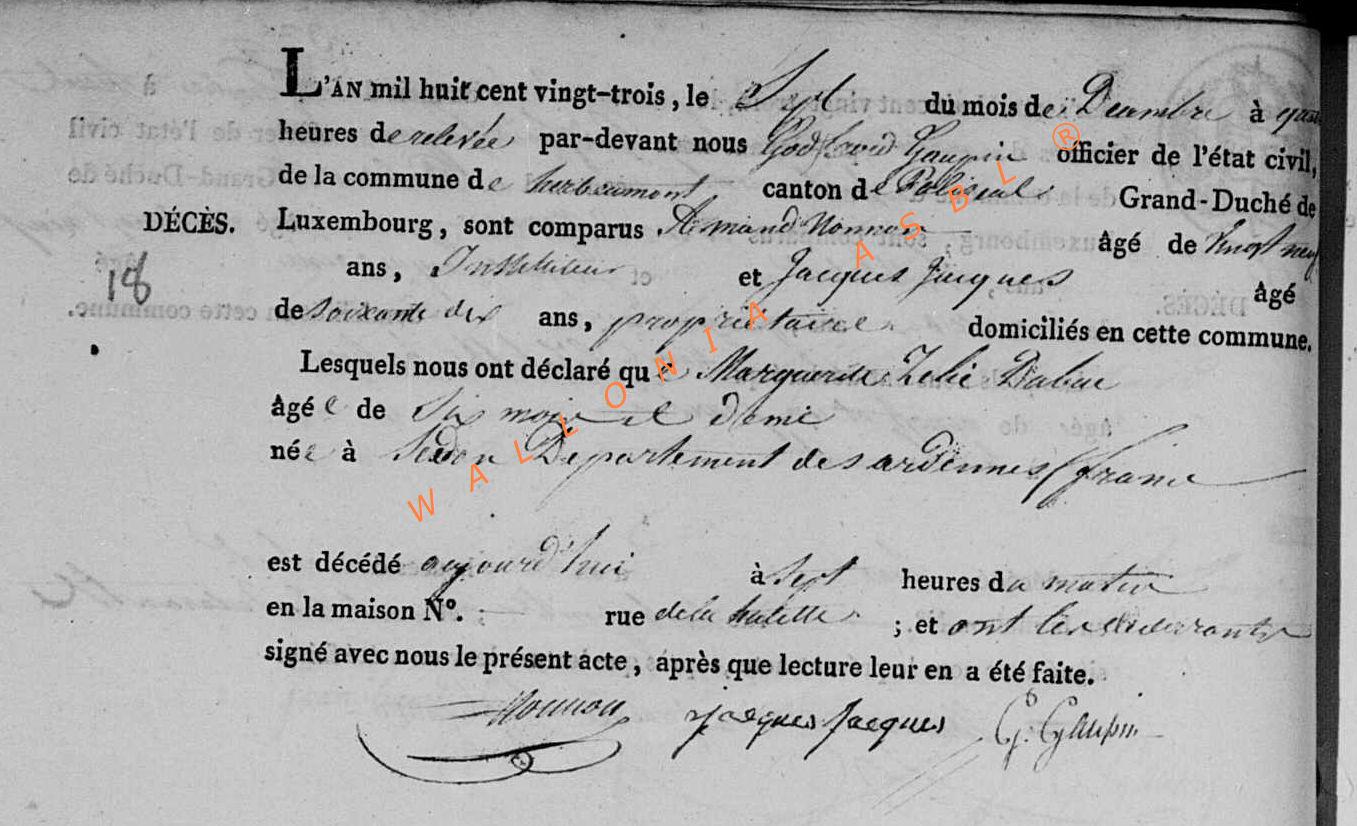 L'AN mil huit cent vingt-trois, le Sept du mois de Decembre à
heures de relevée par-devant nous Godfroid Gaupin officier de l'état civil,
de la commune de herbeumont canton de Paliseul Grand-Duché de
DÉCÈS. Luxembourg, sont comparus Armand Monnon âgé de Vingt neuf
18 ans, Instituteur et Jacques Jacques âgé
de Soixante dix ans, proprietaire domiciliés en cette commune.
Lesquels nous ont déclaré que Marguerite Zelie
âgée de Six mois et demi
née à Sedan Departement des ardennes (france
est décédé aujourd'hui à Sept heures du matin
en la maison N°. rue de la ; et ont les declarants
signé avec nous le présent acte, après que lecture leur en a été faite.
Monnon Jacques Jacques G. Gaupin
WALLONIA ASBL ®